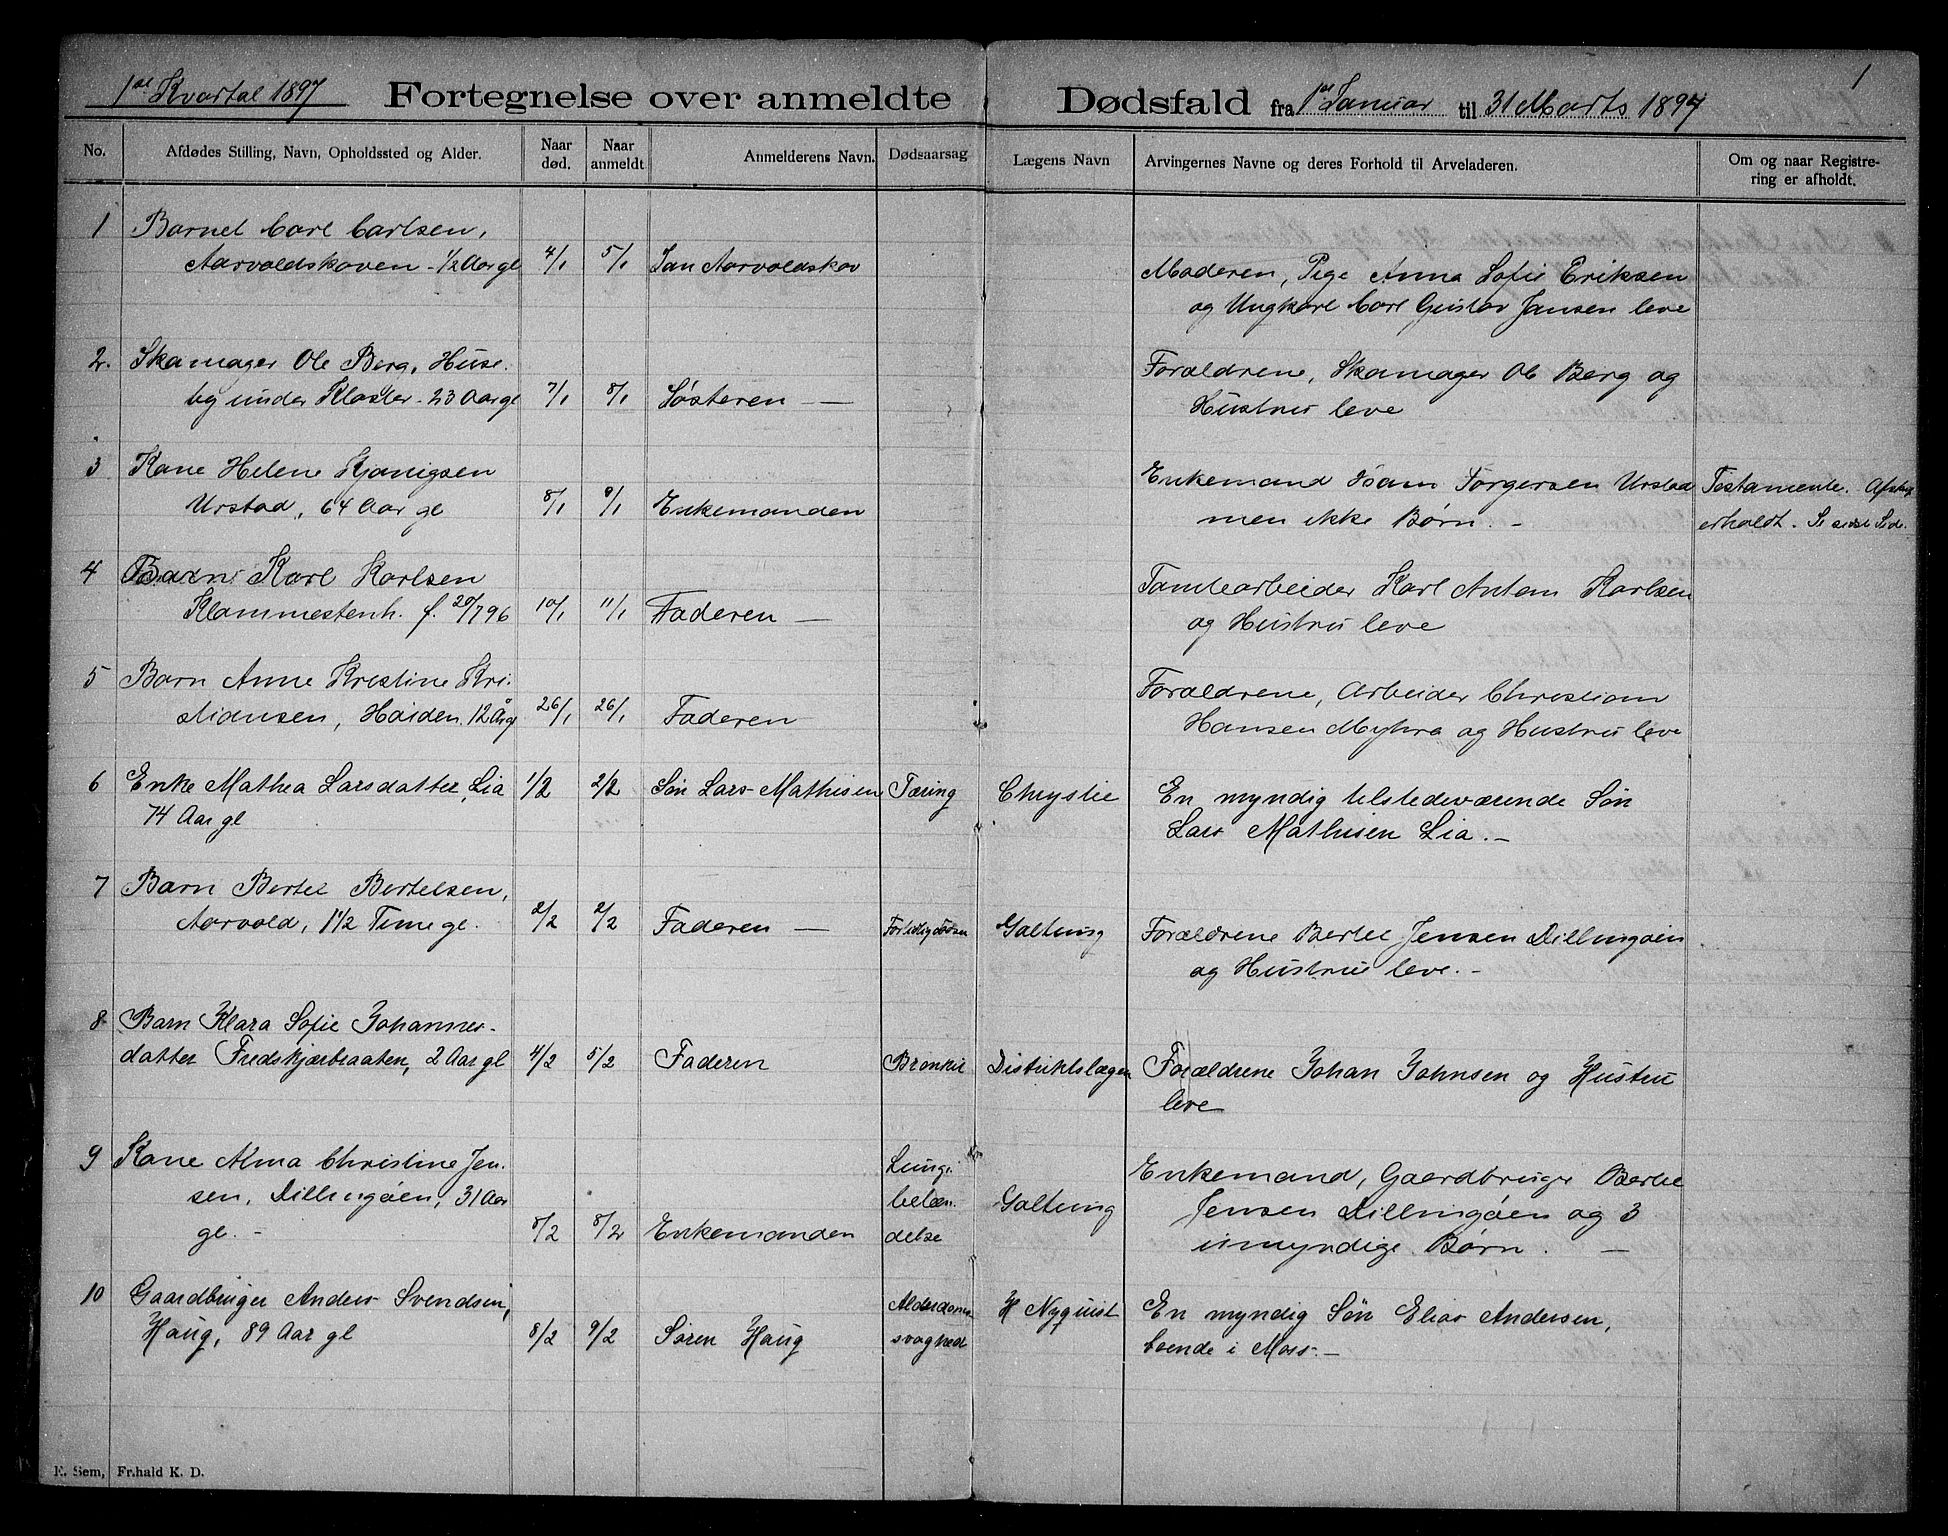 1ste Kvartal 1897 Fortegnelse over anmeldte Dødsfald fra 1ste Januar til 31 Marts 1897
1
No. Afdødes Stilling, Navn, Opholdssted og Alder. Naar død. Naar anmeldt Anmelderens Navn. Dødsaarsag Lægens Navn Arvingernes Navne og deres Forhold til Arveladeren. Om og naar Registrering er afholdt.
1 Barnet Carl Carlsen,
Aarvoldskoven - 1/2 Aar gl 4/1 5/1 Jan Aarvoldskov
Moderen, Pige Anna Sofie Eriksen
og Ungkarl Carl Gustav Jansen leve
2. Skomager Ole Berg, Huse-
by under Kloster - 23 Aar gl 7/1 8/1 Søsteren —
Forældrene, Skomager Ole Berg og
Hustru leve
3 Kone Helene
Urstad, 64 Aar gl 8/1 9/1 Enkemanden
Enkemand Torgersen Urstad
men ikke Børn. -
Testamente.
erholdt. Se sidste Side.
4 Barn Karl Karlsen
Klommestenh. f. 20/7 96 10/1 11/1 Faderen —
Tomtearbeider Karl Anton Karlsen
og Hustru leve
5 Barn Anne Kristine Kri-
stiansen, Haiden, 12 År gl 26/1 26/1 Faderen
Forældrene, Arbeider Christian
Hansen Myhra og Hustru leve
6 Enke Mathea Larsdatter, Lia 1/2 2/2 Søn Lars Mathisen Tæring Chrystie En myndig tilstedeværende Søn
74 Aar gl Lars Mathisen Lia. -
7 Barn Bertel Bertelsen,
Aarvold, 1 1/2 Time gl. 2/2 2/2 Faderen — Galtung Forældrene Bertel Jensen Dillingøen
og Hustru leve. -
8 Barn Klara Sofie Johannes-
datter Fredskjærbraaten, 2 Aar gl 4/2 5/2 Faderen Bronkit Distriktslægen Forældrene Johan Johnsen og Hustru
leve
9 Kone Alma Christine Jen-
sen, Dillingøen, 31 Aar
gl. - 8/2 8/2 Enkemanden
Lunge-
betæn-
delse
Galtung
Enkemand, Gaardbruger Bertel
Jensen Dillingøen og 3
umyndige Børn. —
10 Gaardbruger Anders Svendsen,
Haug, 89 Aar gl 8/2 9/2 Søren Haug
Alderdoms-
svaghed
H Nyquist En myndig Søn Elias Andersen,
boende i Moss. -
E. Sem, Fr.hald K. D.